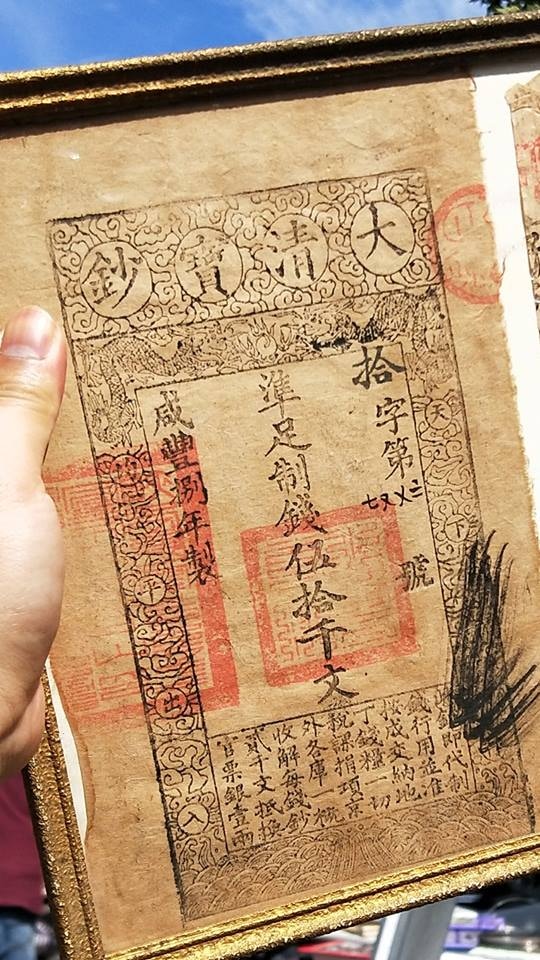 大清寶鈔
天下
拾字第
號
準足制錢伍拾千文
咸豐捌年製
均平出入
此鈔即代制
錢行用並准
按成交納地
丁錢糧一切
稅課捐項京
外各庫一概
收解每錢鈔
貳千文抵換
官票銀壹兩